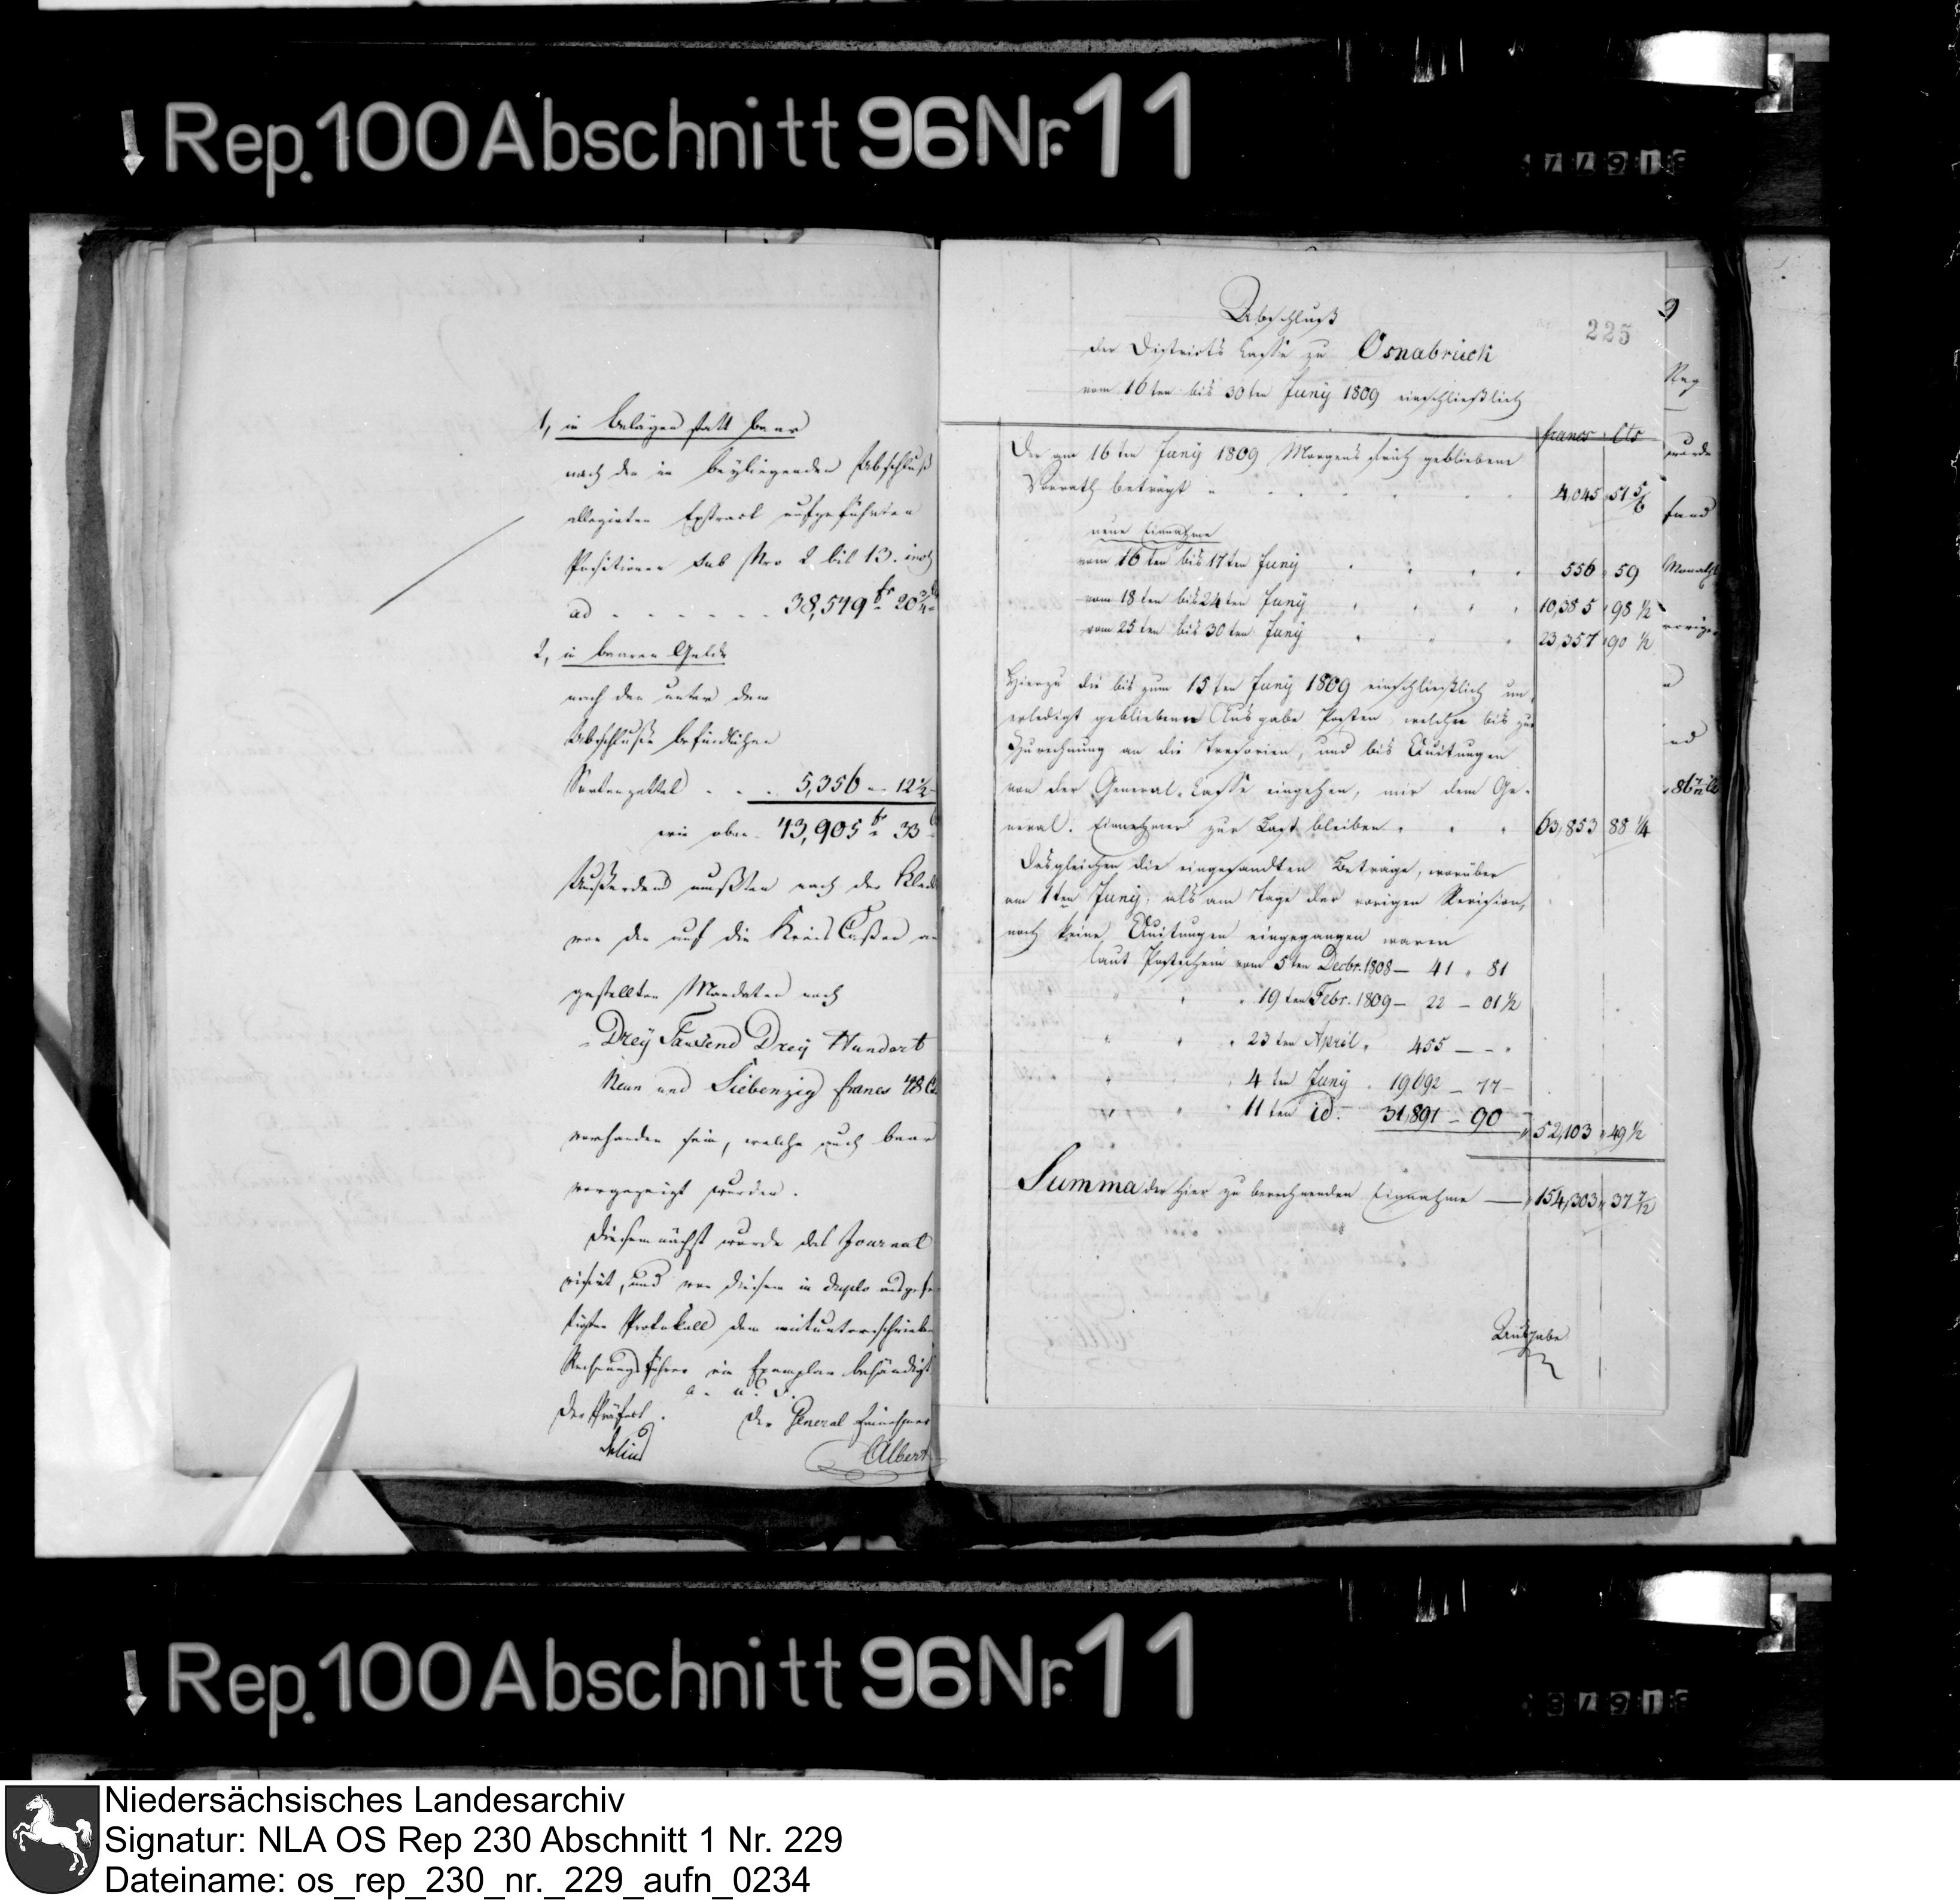 Rep. 100 Abschnitt 96 Nr. 11
1, in Belägen statt baar
nach den in beyliegenden Abschluß
allegirten Extract aufgeführten
Positionen sub Nro 2 bis 13. incl.
ad - - - - - - 38,549 fr 20¾
2, in baaren Gelde
nach den unter dem
Abschluße befindlichen
Sortenzettel . . . 5,356 - 12½
wie oben 43,905 fr 33
Außerdem mußten nach der Klad
von den auf die Kreis Caßen
gestellten Mandaten noch
Drey Tausend Drey Hundert
Neun und Siebenzig francs 48
vorhanden sein, welche auch baar
vorgezeigt wurden.
Diesemnächst wurde das Journal
visirt, und von diesem in duplo ausgefer
tigten Protokoll dem mitunterschrieben
Rechnungsführer ein Exemplar behändigt
a. u. s.
Der Präfect. Der General Einnehmer
Delius Albert
225
Abschluß
der Districts Casse zu Osnabrück
vom 16ten bis 30ten Juny 1809 einschließlich
francs Cts
Der am 16ten Juny 1809 Morgens früh gebliebene
Vorrath beträgt 4,045 51 5/6
neue Einnahme
vom 16ten bis 17ten Juny 556 59
vom 18ten bis 24ten Juny 10,385 98 ½
vom 25ten bis 30ten Juny 23,357 90 ½
Hierzu die bis zum 15ten Juny 1809 einschließlich un
erledigt gebliebenen Ausgabe Posten, welche bis zur
Zurechnung an die Tresorien, und bis Quitungen
von der General-Casse eingehen, mir dem Ge-
neral-Einnehmer zur Last bleiben 63,853 88 ¼
Desgleichen die eingesandten Beträge, worüber
am 1ten Juny, als am Tage der vorigen Revision,
noch keine Quitungen eingegangen waren
laut Postschein vom 5ten Decbr. 1808 — 41 " 81
" " " 19ten Febr. 1809 — 22 — 01½
" " " 23ten April " 455 — - "
" " " 4ten Juny . 19692 — 77 -
" " " 11ten id. 31,891 — 90
52,103 49 ½
Summa der hier zu berechnenden Einnahme — 154,303 37 7/12
Ausgabe
Rep. 100 Abschnitt 96 Nr. 11
Niedersächsisches Landesarchiv
Signatur: NLA OS Rep 230 Abschnitt 1 Nr. 229
Dateiname: os_rep_230_nr._229_aufn_0234